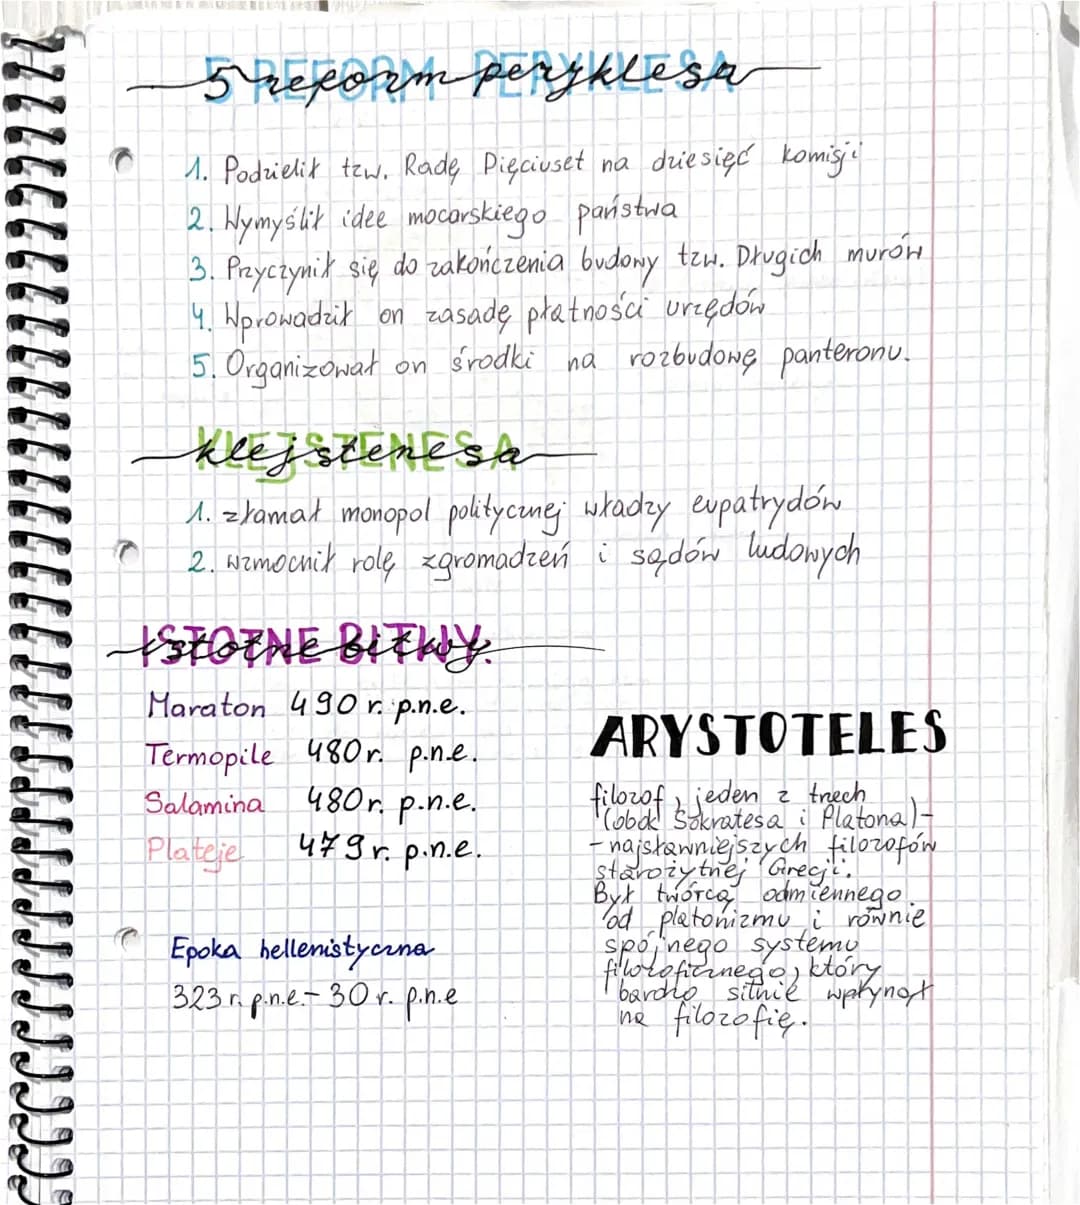 5 reform peryklesa
1. Podzielił tzw. Radę Pięciuset na dziesięć komisji
2. Wymyślił idee mocarskiego państwa
3. Przyczynił się do zakończenia budowy tzw. Długich murów
4. Wprowadził on zasadę płatności urzędów
5. Organizował on środki na rozbudowę panteronu.
klejstenesa
1. złamał monopol politycznej władzy eupatrydów
2. wzmocnił rolę zgromadzeń i sądów ludowych
istotne bitwy:
Maraton 490 r. p.n.e.
Termopile 480 r. p.n.e.
Salamina 480 r. p.n.e.
Plateje 479 r. p.n.e.
Epoka hellenistyczna
323 r. p.n.e. - 30 r. p.n.e
ARYSTOTELES
filozof, jeden z trzech
(obok Sokratesa i Platona) -
- najsławniejszych filozofów
starożytnej Grecji.
Był twórcą odmiennego
od platonizmu i równie
spójnego systemu
filozoficznego, który
bardzo silnie wpłynął
na filozofię.